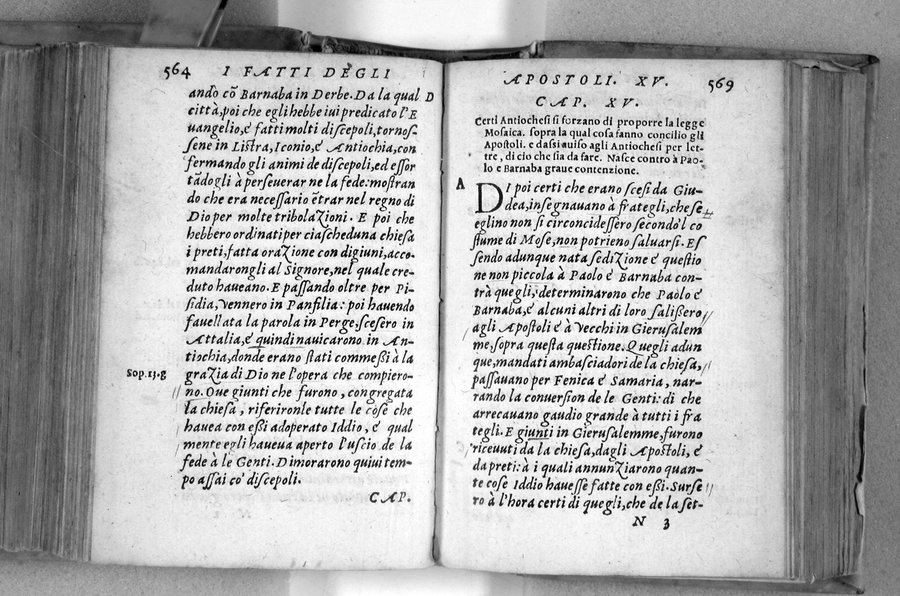 564 I FATTI DEGLI
ando cõ Barnaba in Derbe. Da la qual D
città, poi che egli hebbe iui predicato l'E
uangelio, e fatti molti discepoli, tornos-
sene in Listra, Iconio, e Antiochia, con
fermando gli animi de discepoli, ed essor
tãdogli à perseuerar ne la fede: mostran
do che era necessario ẽtrar nel regno di
Dio per molte tribolazioni. E poi che
hebbero ordinati per ciascheduna chiesa
i preti, fatta orazione con digiuni, acco-
mandarongli al Signore, nel quale cre-
duto haueano. E passando oltre per Pi-
sidia, vennero in Panfilia: poi hauendo
fauellata la parola in Perge, scesero in
Attalia, e quindi nauicarono in An-
tiochia, donde erano stati commeßi à la
Sop. 13. g grazia di Dio ne l'opera che compiero-
no. Oue giunti che furono, congregata
la chiesa, riferironle tutte le cose che
hauea con eßi adoperato Iddio, e qual
mente egli haueua aperto l'uscio de la
fede à le Genti. Dimorarono quiui tem-
po assai co' discepoli.
CAP.
APOSTOLI. XV. 569
CAP. XV.
Certi Antiochesi si forzano di proporre la legge
Mosaica. sopra la qual cosa fanno concilio gli
Apostoli. e dassi auiso agli Antiochesi per let-
tre, di cio che sia da fare. Nasce contrò à Pao-
lo e Barnaba graue contenzione.
A DI poi certi che erano scesi da Giu-
dea, insegnauano à frategli, che se
eglino non si circoncidessero secondo'l co
stume di Mose, non potrieno saluarsi. Es
sendo adunque nata sedizione e questio
ne non piccola à Paolo e Barnaba con-
trà quegli, determinarono che Paolo e
Barnaba, e alcuni altri di loro salißero
agli Apostoli e à Vecchi in Gierusalem
me, sopra questa questione. Quegli adun
que, mandati ambasciadori de la chiesa,
passauano per Fenica e Samaria, nar-
rando la conuersion de le Genti: di che
arrecauano gaudio grande à tutti i fra
tegli. E giunti in Gierusalemme, furono
riceuuti da la chiesa, dagli Apostoli, e
da preti: à i quali annunziarono quan-
te cose Iddio hauesse fatte con eßi. Surse
ro à l'hora certi di quegli, che de la set-
N 3